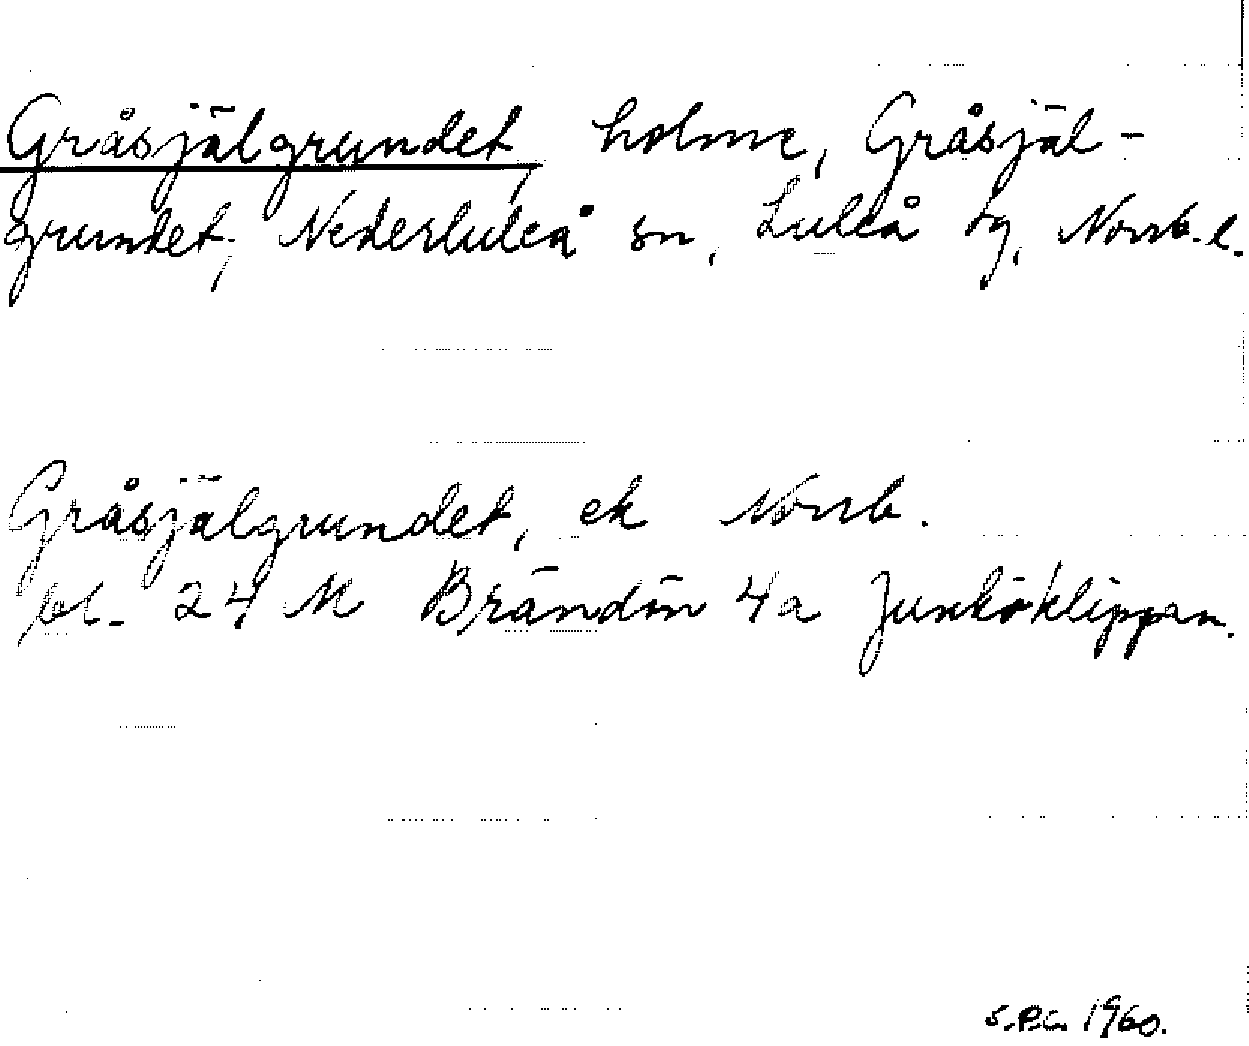 Gråsjälgrundet, holme, Gråsjäl-
grundet, Nederluleå sn, Luleå tg, Norrb. l.
Gråsjälgrundet, ek Norrb.
bl. 24 M Brändön 4a Junköklippan.
S.P.C. 1960.